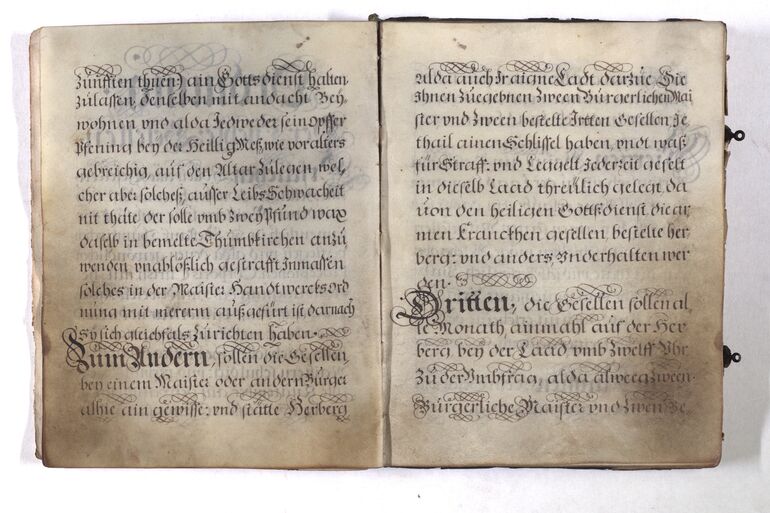 Zünfften thuen) ain Gottsdienst halten
Zůlassen, denselben mit andacht Bey,
wohnen vnd alda Jedweder sein opffer
Pfening bey der Heillig Meß, wie vor alters
gebreichig, auf den Altar Zůlegen wel,
cher aber solcheß, ausser Leibs Schwacheit
nit thette der solle vmb Zwey Pfund wax
daselb in bemelte Thůmbkirchen anzů
wenden vnablößlich gestrafft Inmassen
solches in der Maister Handtwercks Ord
nung mit mererm außgefürt ist darnach
Sy sich gleichfals Zůrichten haben.
Zum Andern, sollen die Gesellen
bey einem Maister oder andern Burger
alhie ain gewisse: vnd stätte Herberg
alda auch Ir aigne Ladt darzůe, Sie
Ihnen Zuegebnen Zween Bürgerlichen Mai
ster vnd Zween bestelte Irtten Gesellen Je
thail ainen Schlissel haben, vndt waß
für Straff: vnd Leggelt Jederzeit gefelt
in dieselb Laad threülich gelegt da
von den heiligen Gottßdienst die ar,
men Kranckhen gesellen, bestelte her
berg: vnd anders Vnderhalten wer
den.
Dritten, die Gesellen sollen al,
le Monath, ainmahl auf der Her
berg, bey der Laad vmb Zwelff Vhr
Zu der Vmbfrag, alda alweeg Zween
Bürgerliche Maister vnd Zwen Be